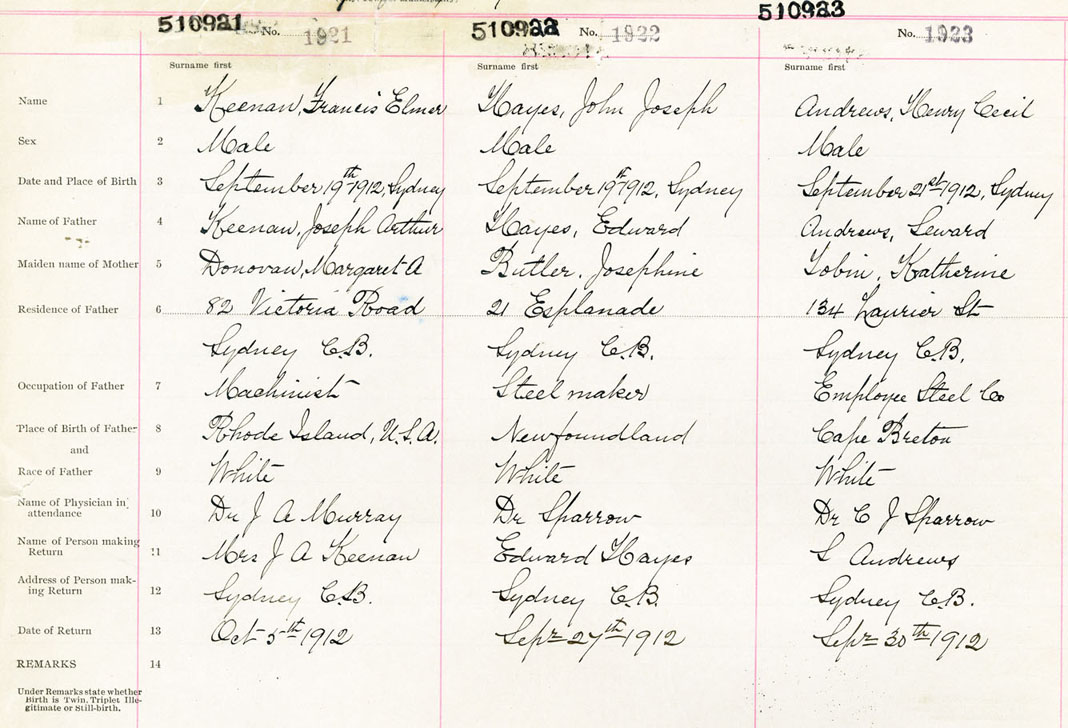 510921 No. 1921 510922 No. 1922 510923 No. 1923
Surname first Surname first Surname first
Name 1 Keenan, Francis Elmer Hayes, John Joseph Andrews, Henry Cecil
Sex 2 Male Male Male
Date and Place of Birth 3 September 19th 1912, Sydney September 19th 1912, Sydney September 21st 1912, Sydney
Name of Father 4 Keenan, Joseph Arthur Hayes, Edward Andrews, Seward
Maiden name of Mother 5 Donovan, Margaret A Butler, Josephine Tobin, Katherine
Residence of Father 6 82 Victoria Road 21 Esplanade 134 Laurier St
Sydney C.B. Sydney C.B. Sydney C.B.
Occupation of Father 7 Machinist Steel maker Employee Steel Co
Place of Birth of Father 8 Rhode Island, U.S.A. Newfoundland Cape Breton
and
Race of Father 9 White White White
Name of Physician in
attendance 10 Dr J A Murray Dr Sparrow Dr C J Sparrow
Name of Person making
Return 11 Mrs J A Keenan Edward Hayes S Andrews
Address of Person mak-
ing Return 12 Sydney C.B. Sydney C.B. Sydney C.B.
Date of Return 13 Oct 5th 1912 Sept 27th 1912 Sept 30th 1912
REMARKS 14
Under Remarks state whether
Birth is Twin, Triplet Ille-
gitimate or Still-birth.